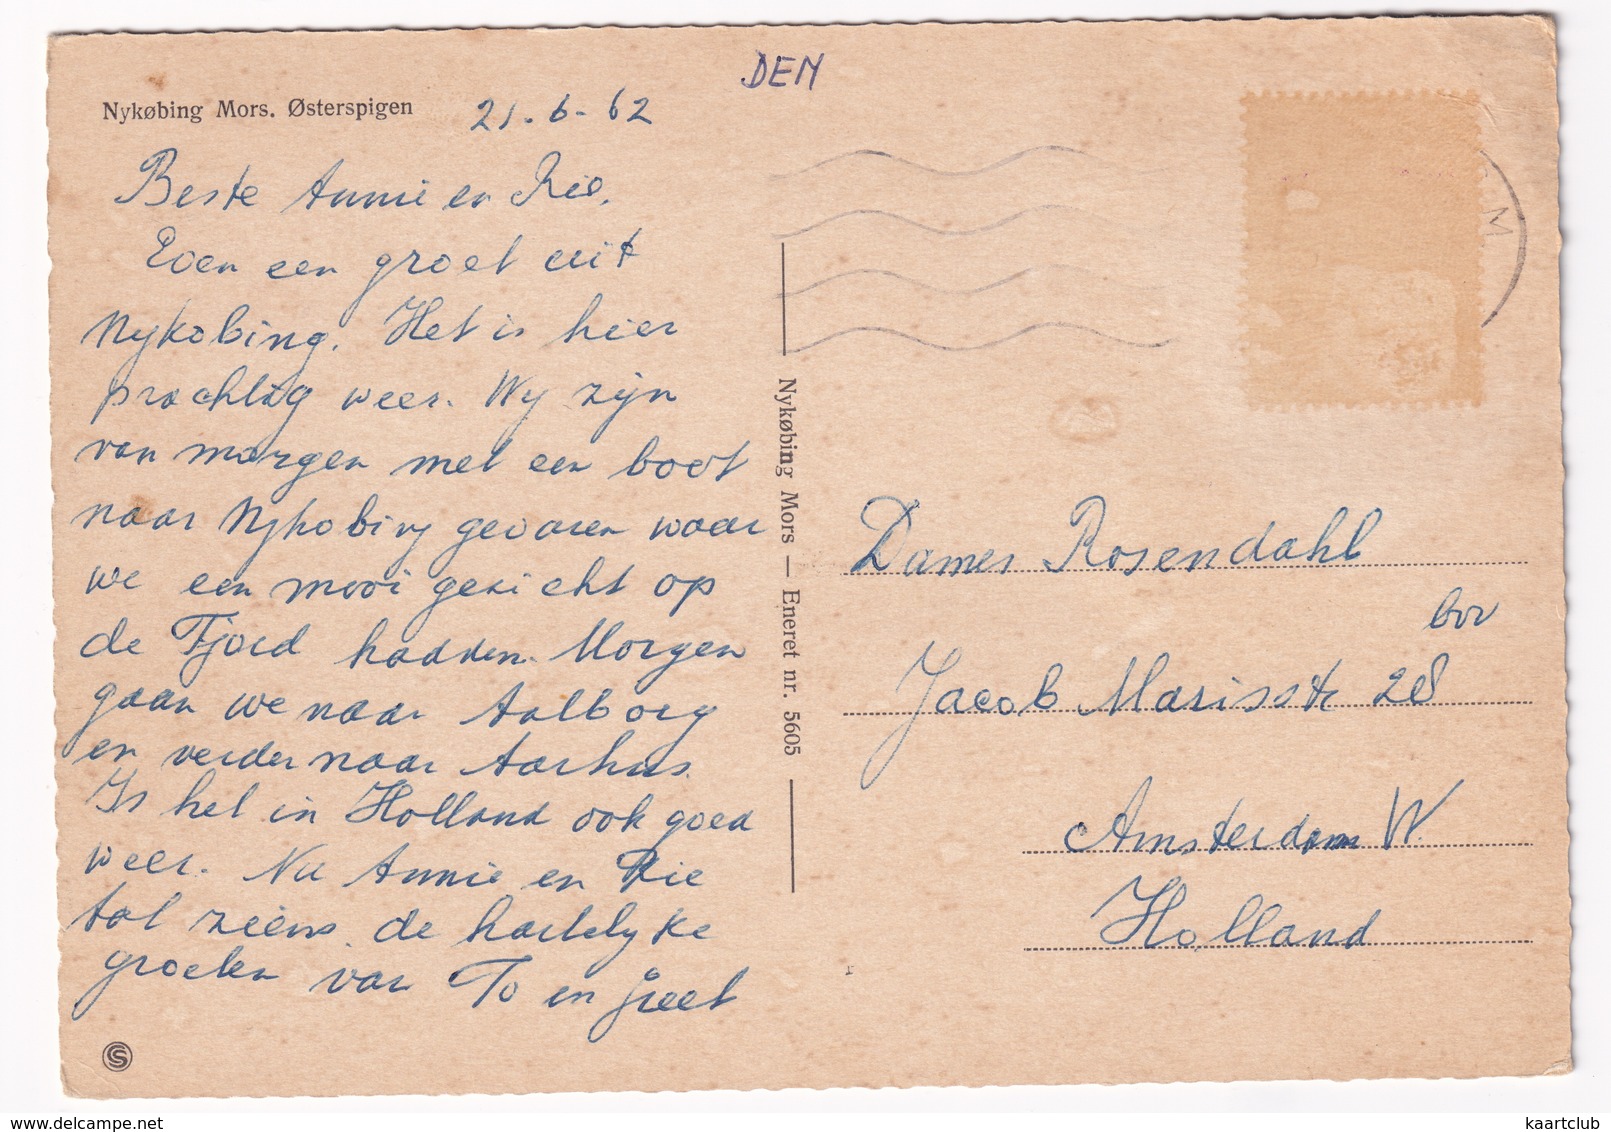 DEN
Nykøbing Mors. Østerspigen
21-6-62
Beste Annie en Rie,
Even een groet uit
Nykobing. Het is hier
prachtig weer. Wy zijn
van morgen met een boot
naar Nykobing gevaren waar
we een mooi gezicht op
de Fjord hadden. Morgen
gaan we naar Aalborg
en verder naar Aarhus.
Is het in Holland ook goed
weer. Nu Annie en Rie
tot ziens. de hartelyke
groeten van To en Greet
Nykøbing Mors — Eneret nr. 5605
M
Dames Rosendahl
bov
Jacob Marisstr 28
Amsterdam W.
Holland
delcampe.net
kaartclub